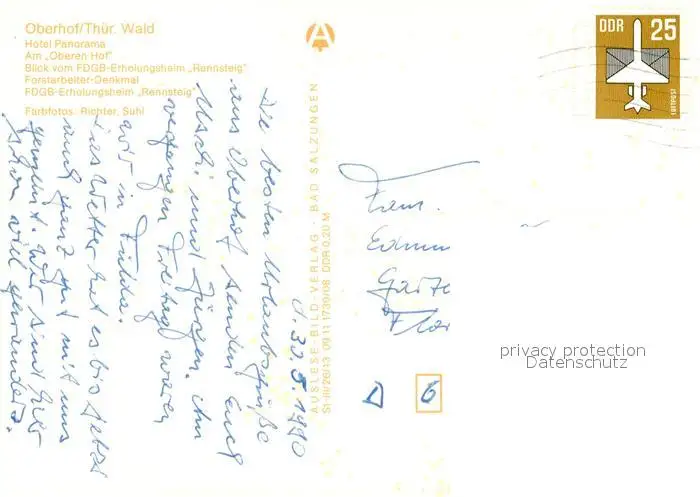 Oberhof/Thür. Wald
Hotel Panorama
Am „Oberen Hof"
Blick vom FDGB-Erholungsheim „Rennsteig"
Forstarbeiter-Denkmal
FDGB-Erholungsheim „Rennsteig"
Farbfotos: Richter, Suhl
AUSLESE-BILD-VERLAG · BAD SALZUNGEN
DDR 0,20 M
DDR 25
LUFTPOST
30.5.1990
Die besten Urlaubsgrüße
aus Oberhof senden Euch
Uschi und Jürgen. Am
vergangen Freitag waren
wir in Fulda.
Das Wetter hat es bis jetzt
auch ganz gut mit uns
gemeint. Wir sind hier
schon viel gewandert.
Fam.
Edmun
Gärtn
Flo
D 6
privacy protection
Datenschutz